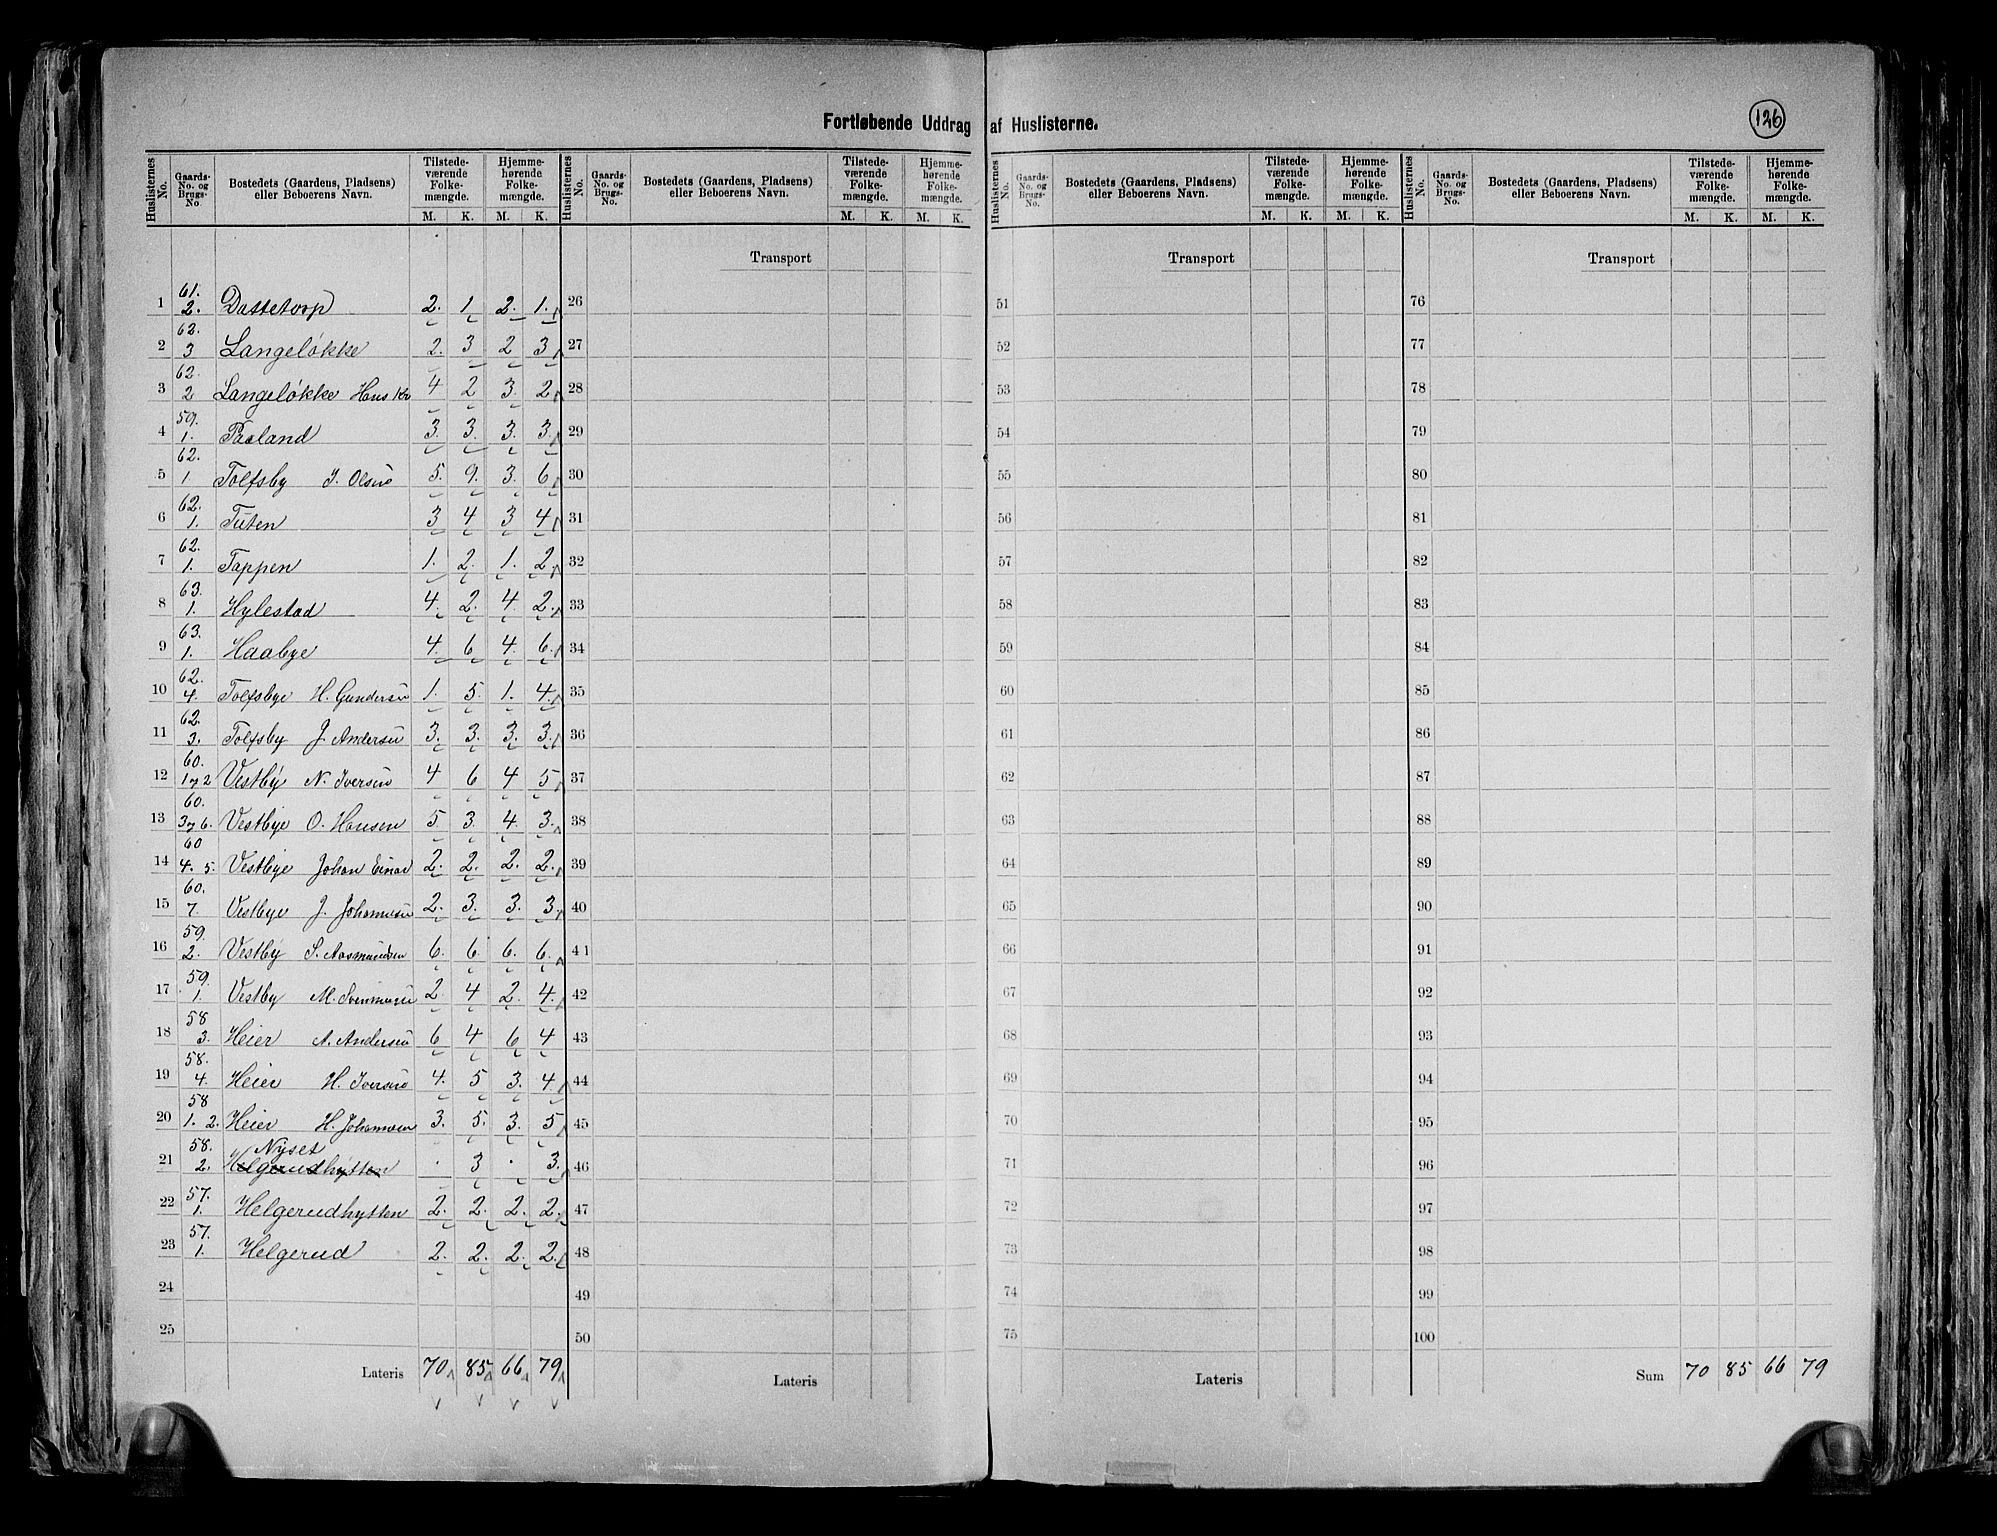 Fortløbende Uddrag af Huslisterne.
126
Huslisternes No. Gaards-No. og Brugs-No. Bostedets (Gaardens, Pladsens) eller Beboerens Navn. Tilstedeværende Folkemængde. M. K. Hjemmehørende Folkemængde. M. K.
Huslisternes No. Gaards-No. og Brugs-No. Bostedets (Gaardens, Pladsens) eller Beboerens Navn. Tilstedeværende Folkemængde. M. K. Hjemmehørende Folkemængde. M. K.
Huslisternes No. Gaards-No. og Brugs-No. Bostedets (Gaardens, Pladsens) eller Beboerens Navn. Tilstedeværende Folkemængde. M. K. Hjemmehørende Folkemængde. M. K.
Huslisternes No. Gaards-No. og Brugs-No. Bostedets (Gaardens, Pladsens) eller Beboerens Navn. Tilstedeværende Folkemængde. M. K. Hjemmehørende Folkemængde. M. K.
Transport Transport Transport
1 61. 2. Dassetorp 2. 1 2. 1. 26 51 76
2 62. 3 Langeløkke 2. 3 2 3 27 52 77
3 62. 2 Langeløkke Hans Kr 4 2 3. 2 28 53 78
4 59. 1. Paaland 3. 3. 3. 3. 29 54 79
5 62. 1 Tolfsby J. Olsen 5. 9. 3. 6 30 55 80
6 62. 1. Tuten 3 4 3 4 31 56 81
7 62. 1. Tappen 1. 2. 1. 2 32 57 82
8 63. 1. Hylestad 4. 2. 4. 2. 33 58 83
9 63. 1. Haabye 4. 6 4. 6. 34 59 84
10 62. 4. Tolfsbye H. Gundersen 1. 5. 1. 4. 35 60 85
11 62. 3. Tolfsby J. Andersen 3. 3. 3. 3. 36 61 86
12 60. 1 og 2 Vestby N. Iversen 4 6 4 5 37 62 87
13 60. 3 og 6. Vestbye O. Hansen 5 3. 4. 3. 38 63 88
14 60 4. 5. Vestbye Johan Einar 2. 2. 2. 2. 39 64 89
15 60. 7. Vestbye J. Johannesen 2. 3. 3. 3. 40 65 90
16 59. 2. Vestby S. Aasmundsen 6. 6. 6. 6. 41 66 91
17 59. 1. Vestby M. 2. 4 2. 4. 42 67 92
18 58 3. Heier A. Andersen 6 4 6 4 43 68 93
19 58. 4. Heier H. Iversen 4. 5 3. 4. 44 69 94
20 58 1. 2. Heier H. Johannesen 3. 5. 3. 5 45 70 95
Nyset
21 58. 2. Helgerudhytten . 3 . 3. 46 71 96
22 57. 1. Helgerudhytten 2. 2. 2. 2. 47 72 97
23 57. 1. Helgerud 2. 2. 2. 2. 48 73 98
24 49 74 99
25 50 75 100
Lateris 70 85 66 79 Lateris Lateris Sum 70 85 66 79